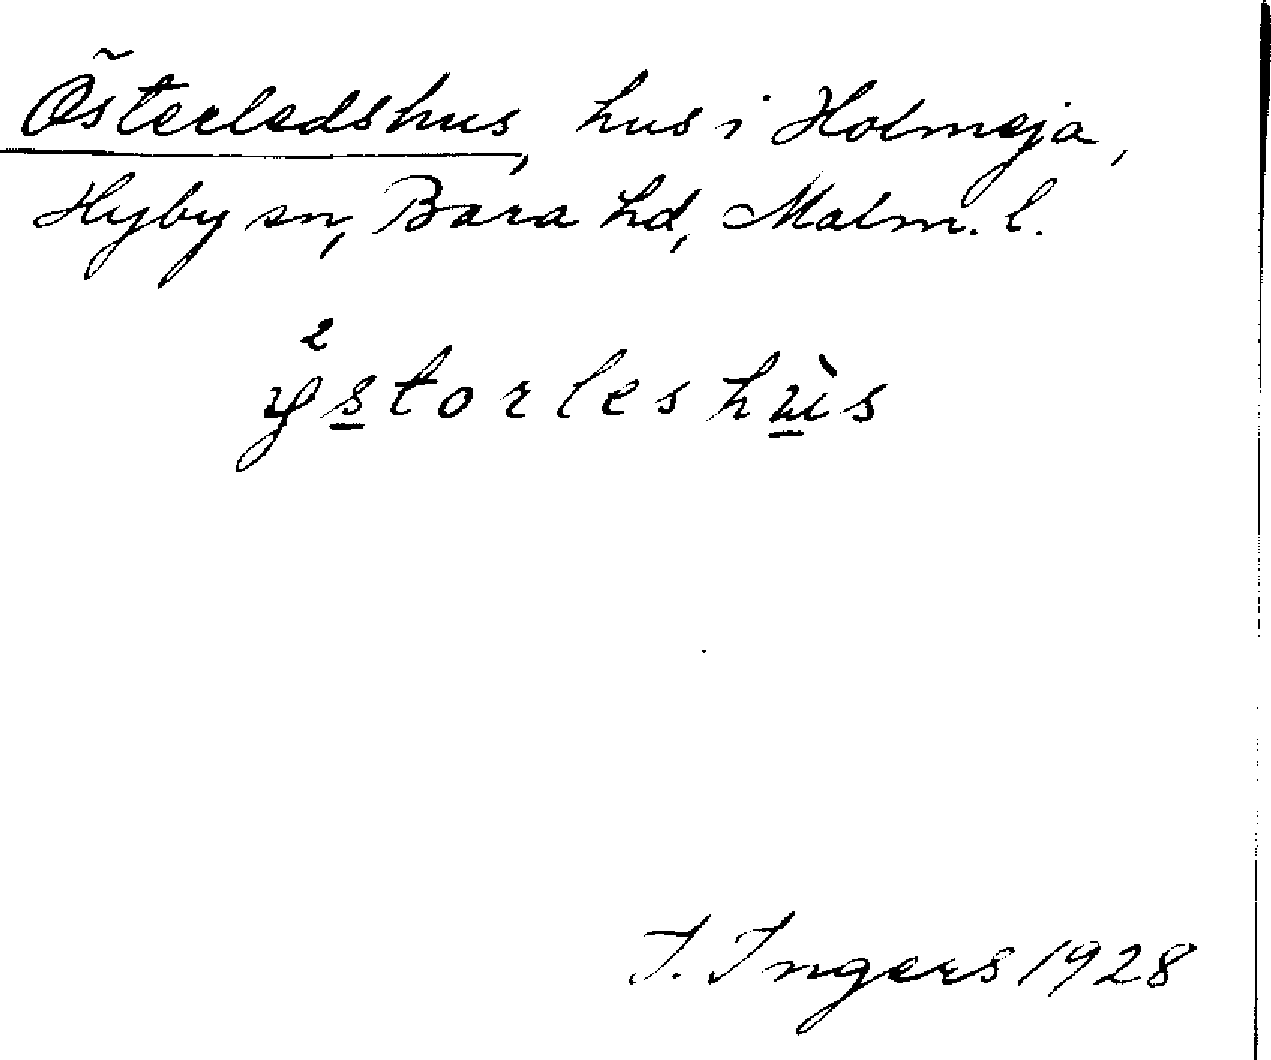 Österledshus, hus i Holmeja,
Hyby sn, Bara hd, Malm. l.
ÿ²storleshùs
I. Ingers 1928